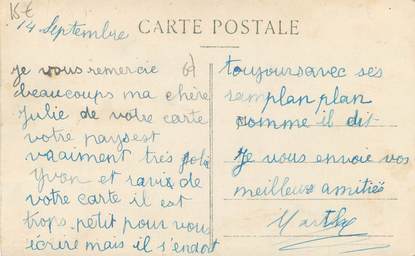 15 €
14 Septembre
CARTE POSTALE
je vous remercie
beaucoups ma chère
Julie de votre carte
votre pays est
vraiment très joli
Yvon et ravis de
votre carte il est
trops petit pour vous
écrire mais il s'endort
toujours avec ses
ramplan plan
comme il dit
Je vous envoie vos
meilleurs amitiés
Marthe